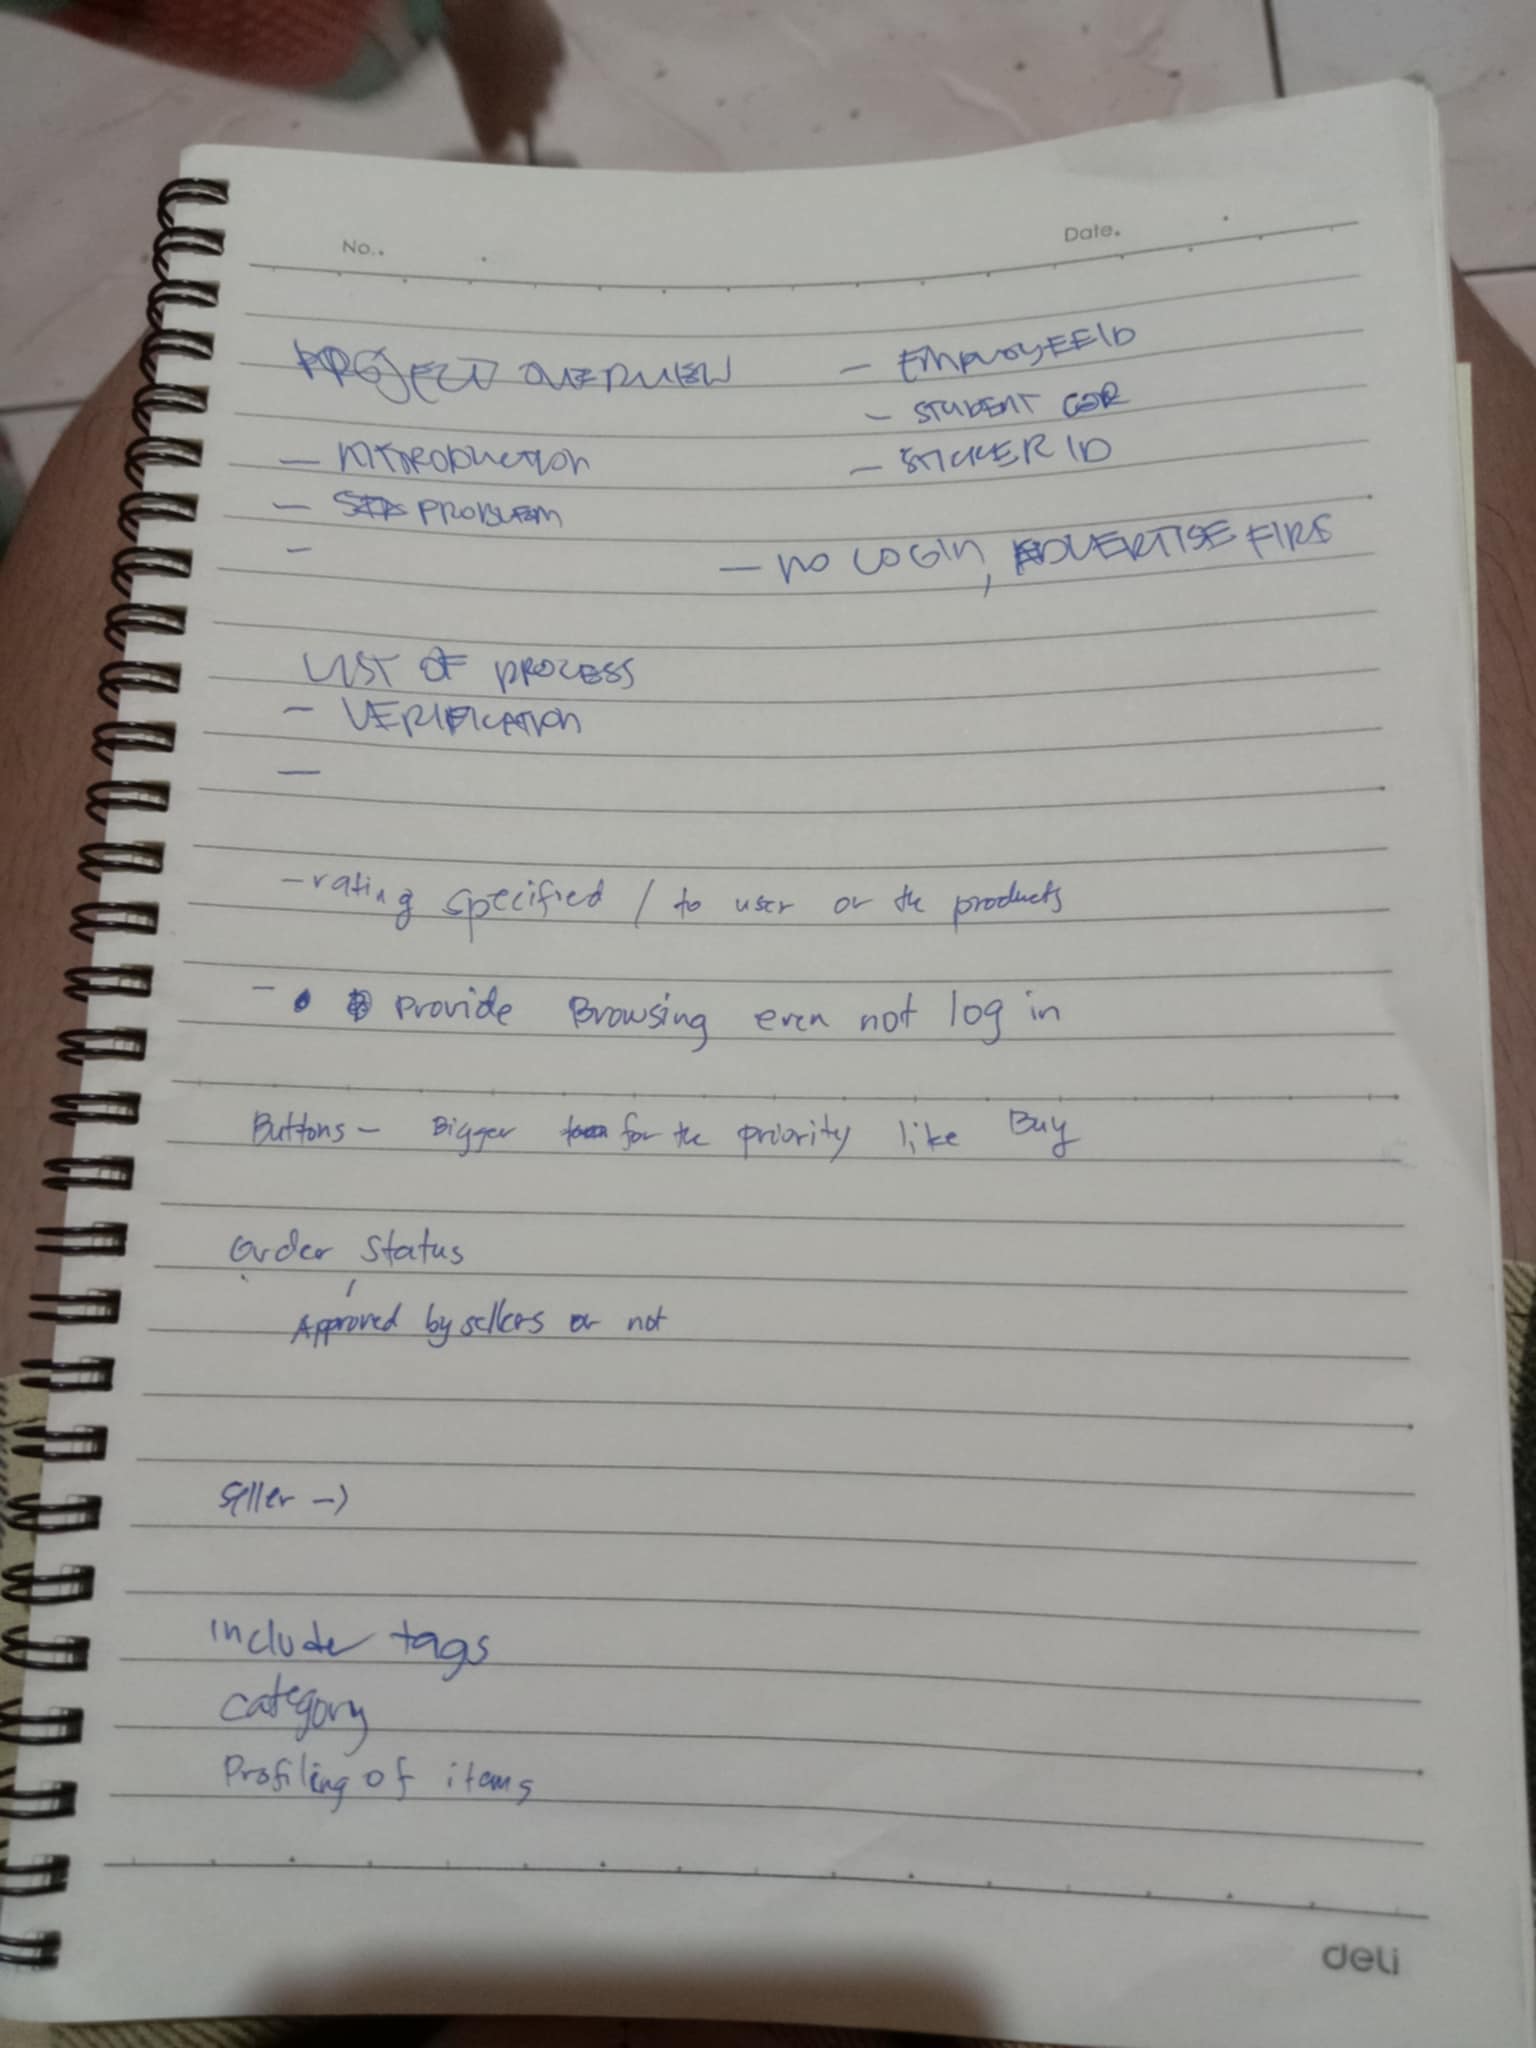 No.
Date.
PROJECT OVERVIEW
- INTRODUCTION
- PROBLEM
-
- EMPLOYEE ID
- STUDENT COR
- STICKER ID
- NO LOGIN, ADVERTISE FIRS
LIST OF PROCESS
- VERIFICATION
-
- rating specified / to user or the products
- • Provide Browsing even not log in
Buttons - Bigger for the priority like Buy
Order Status
Approved by sellers or not
Seller ->
include tags
category
Profiling of items
deli